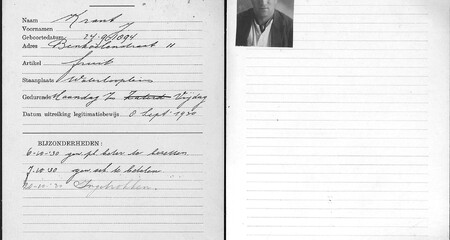 Naam Krant
Voornamen J
Geboortedatum: 24-9-1894
Adres 11
Artikel fruit
Staanplaats Waterlooplein
Gedurende Maandag Vrijdag
Datum uitreiking legitimatiebewijs Sept. 1930
BIJZONDERHEDEN:
6-10-30 gen. pl. beter te bezetten
7-10-30 gen. sch. te betalen
20-10-30 Ingetrokken.